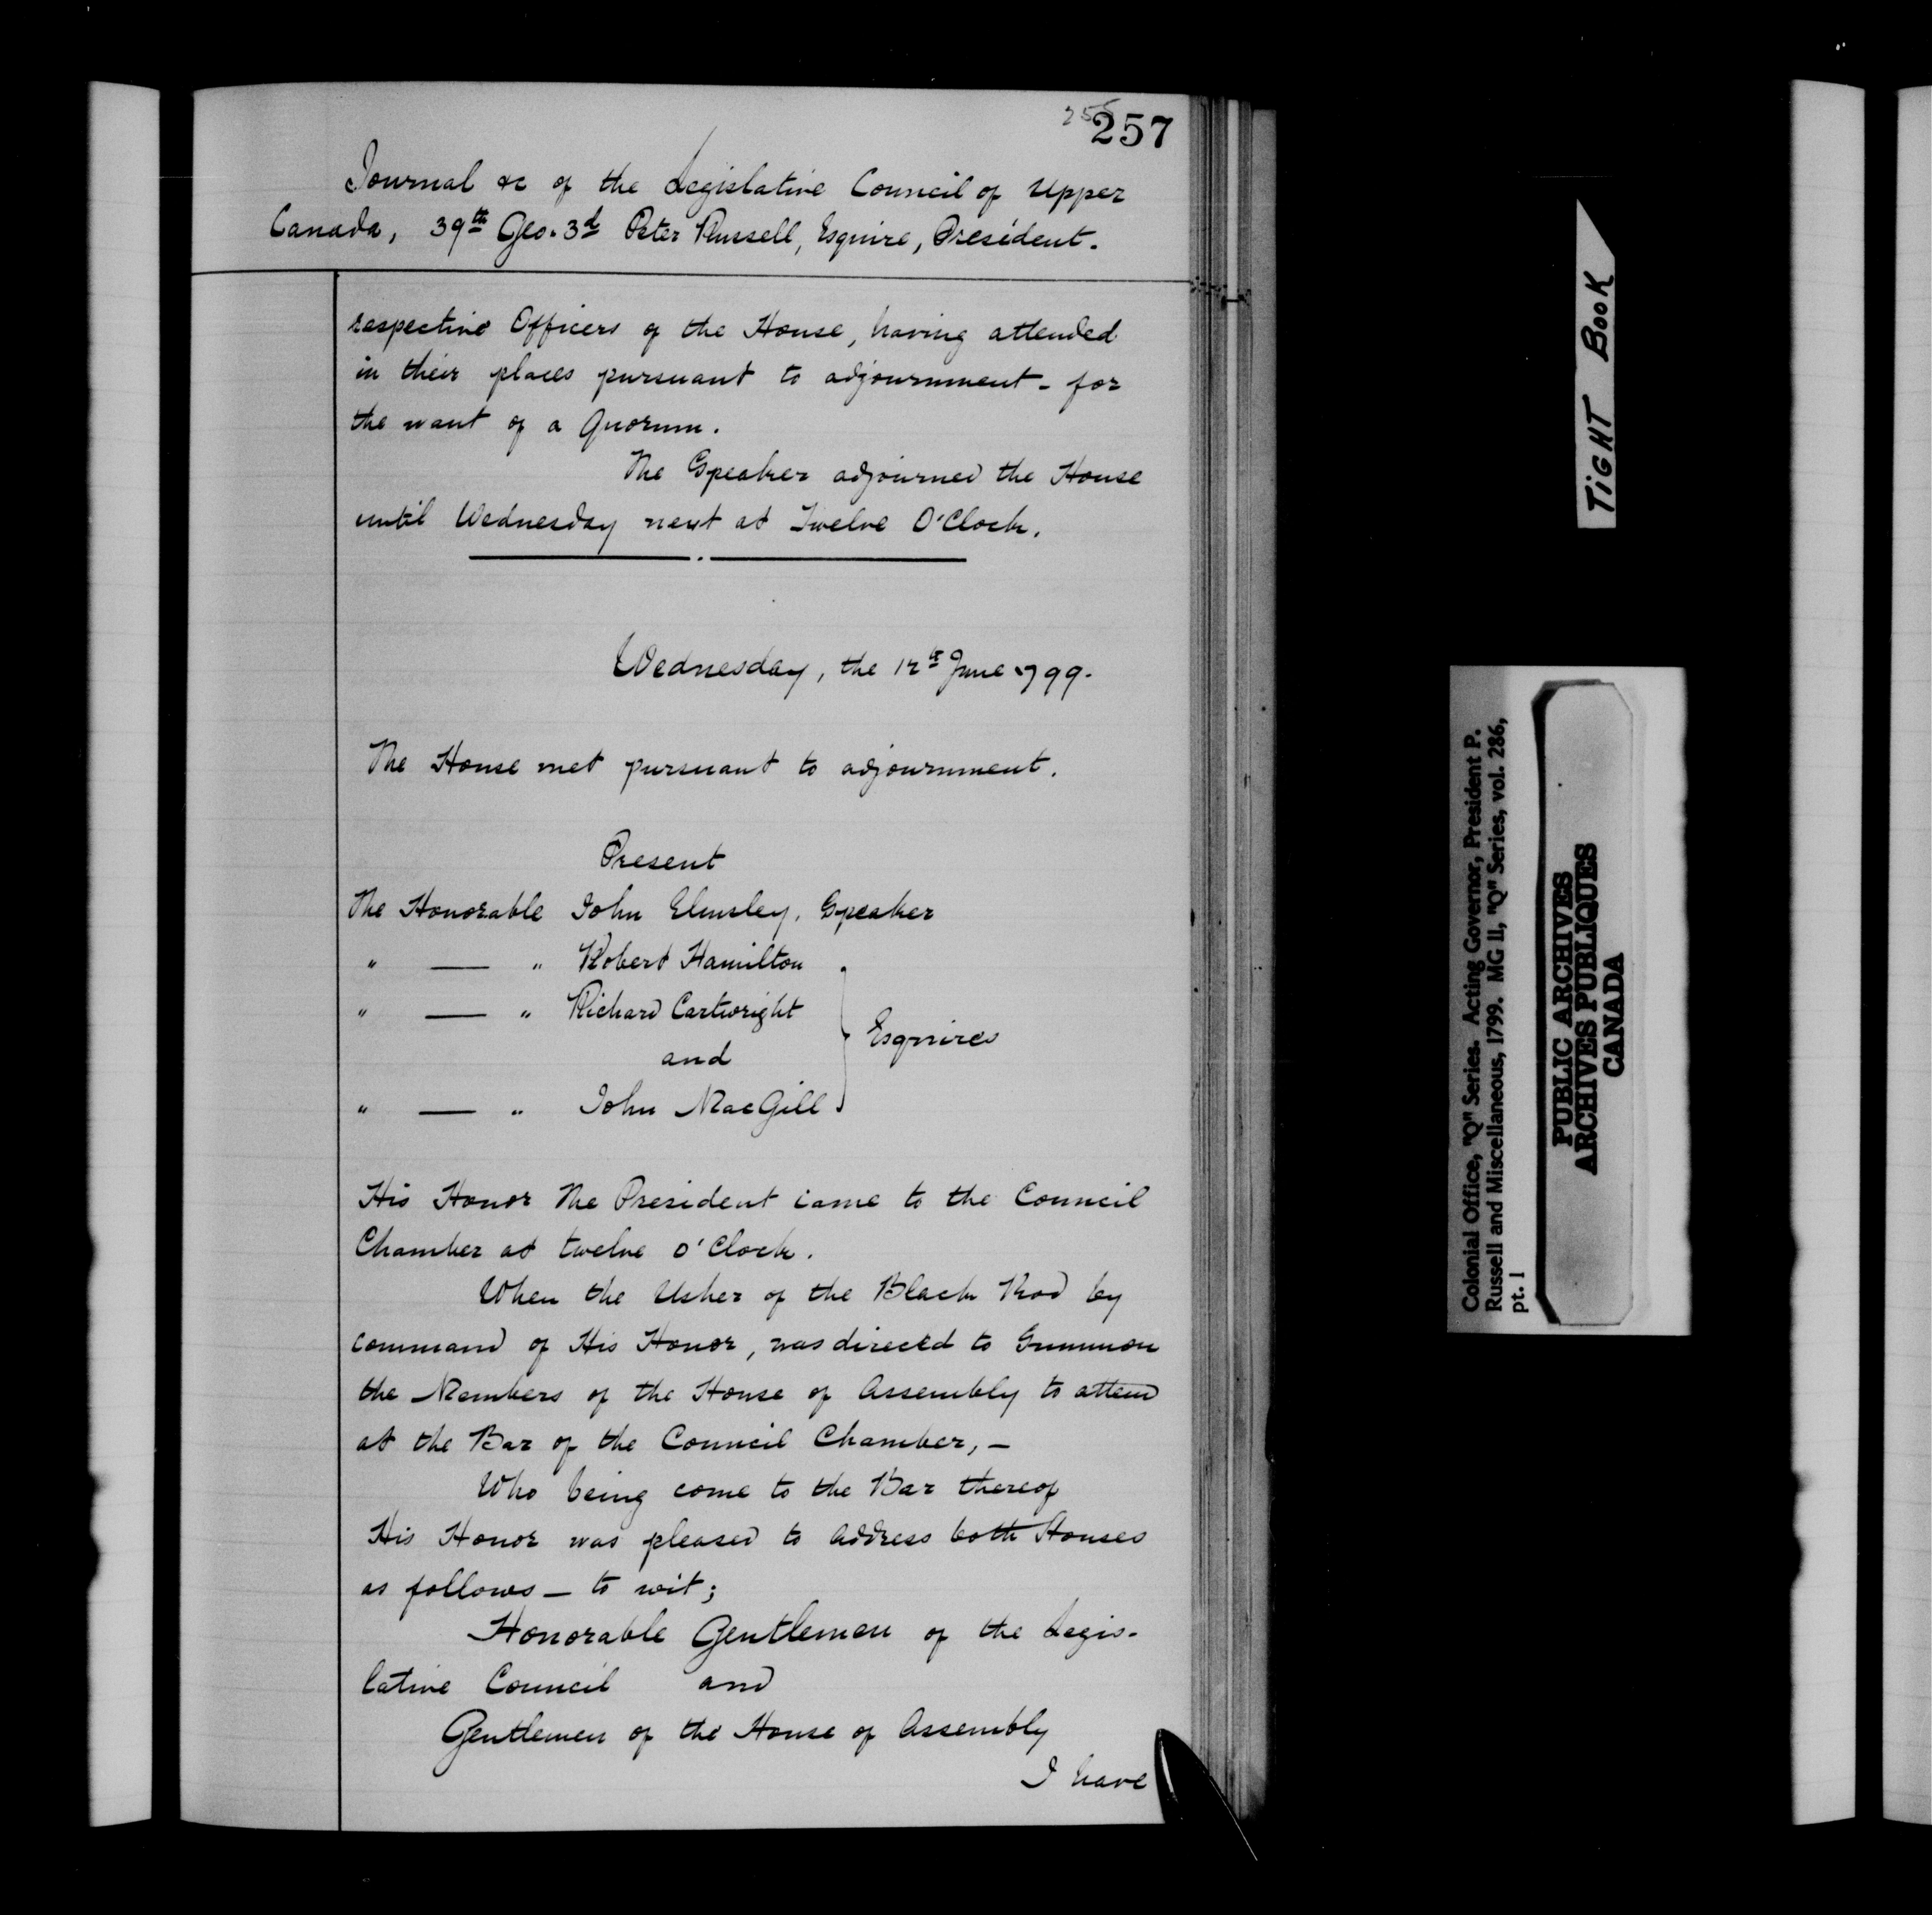 257
Journal &c of the Legislative Council of Upper
Canada, 39th Geo. 3d Peter Russell, Esquire, President.
respective Officers of the House, having attended
in their places pursuant to adjournment - for
the want of a Quorum.
The Speaker adjourned the House
until Wednesday next at Twelve O'Clock.
Wednesday, the 12th June 1799.
The House met pursuant to adjournment.
Present
The Honorable John Elmsley, Speaker
" — " Robert Hamilton
" — " Richard Cartwright
and
Esquires
" — " John MacGill
His Honor The President came to the Council
Chamber at twelve O'Clock.
When the Usher of the Black Rod by
command of His Honor, was directed to Summon
the Members of the House of Assembly to attend
at the Bar of the Council Chamber, -
Who being come to the Bar thereof
His Honor was pleased to address both Houses
as follows - to wit;
Honorable Gentlemen of the Legis-
lative Council and
Gentlemen of the House of Assembly
I have
TIGHT BOOK
Colonial Office, "Q" Series. Acting Governor, President P.
Russell and Miscellaneous, 1799. MG 11, "Q" Series, vol. 286,
pt. 1
PUBLIC ARCHIVES
ARCHIVES PUBLIQUES
CANADA